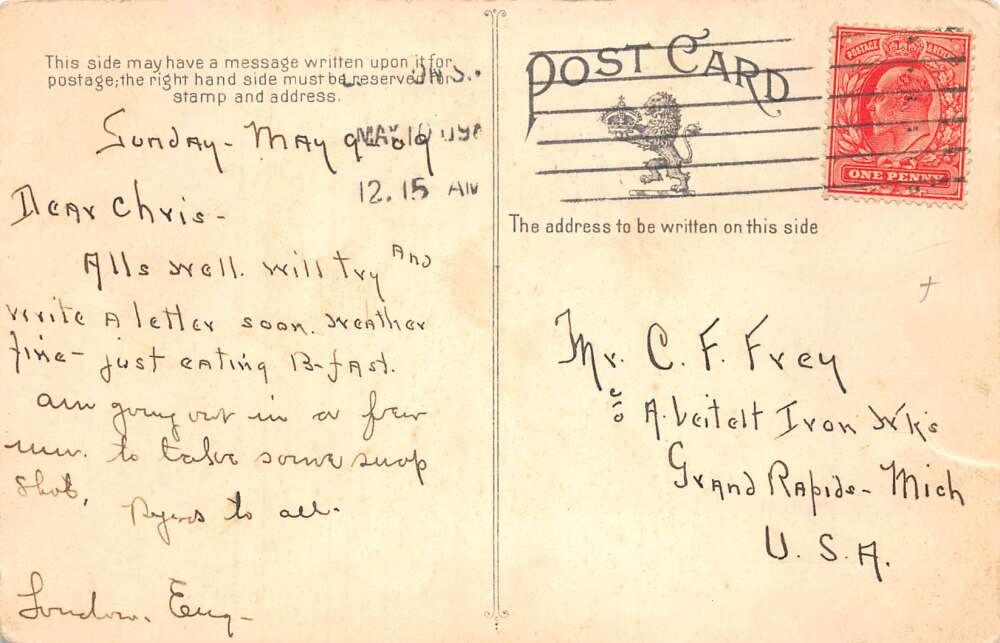 This side may have a message written upon it for
postage; the right hand side must be reserved for
stamp and address.
Sunday - May 9 - 09
MAY 10
12.15 AM
Dear Chris -
Alls well. will try and
write a letter soon. weather
fine - just eating B-fast.
am going out in a few
min. to take some snap
shots,
Regards to all -
London, Eng -
POST CARD
POSTAGE
ONE PENNY
The address to be written on this side
Mr. C. F. Frey
c/o A. Leitelt Iron Wks
Grand Rapids - Mich
U. S. A.